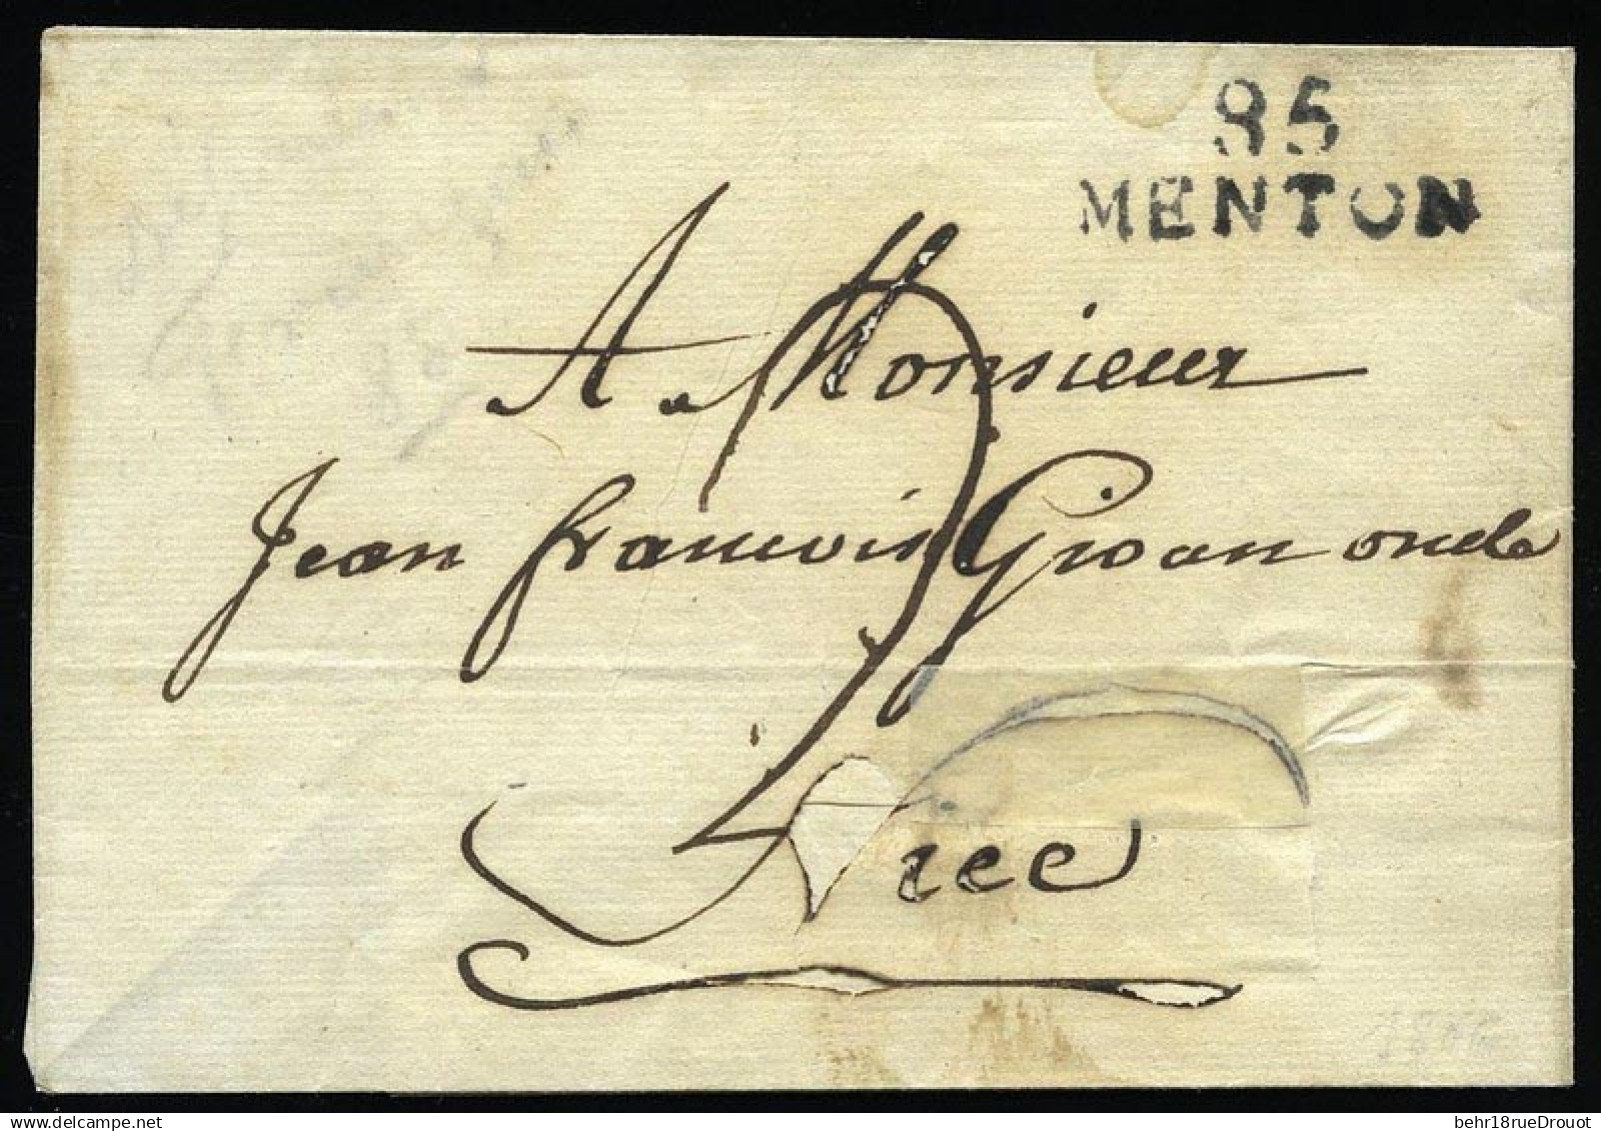 85
MENTON
A Monsieur
Jean francois Gioan oncle
Nice
behr18rueDrouot